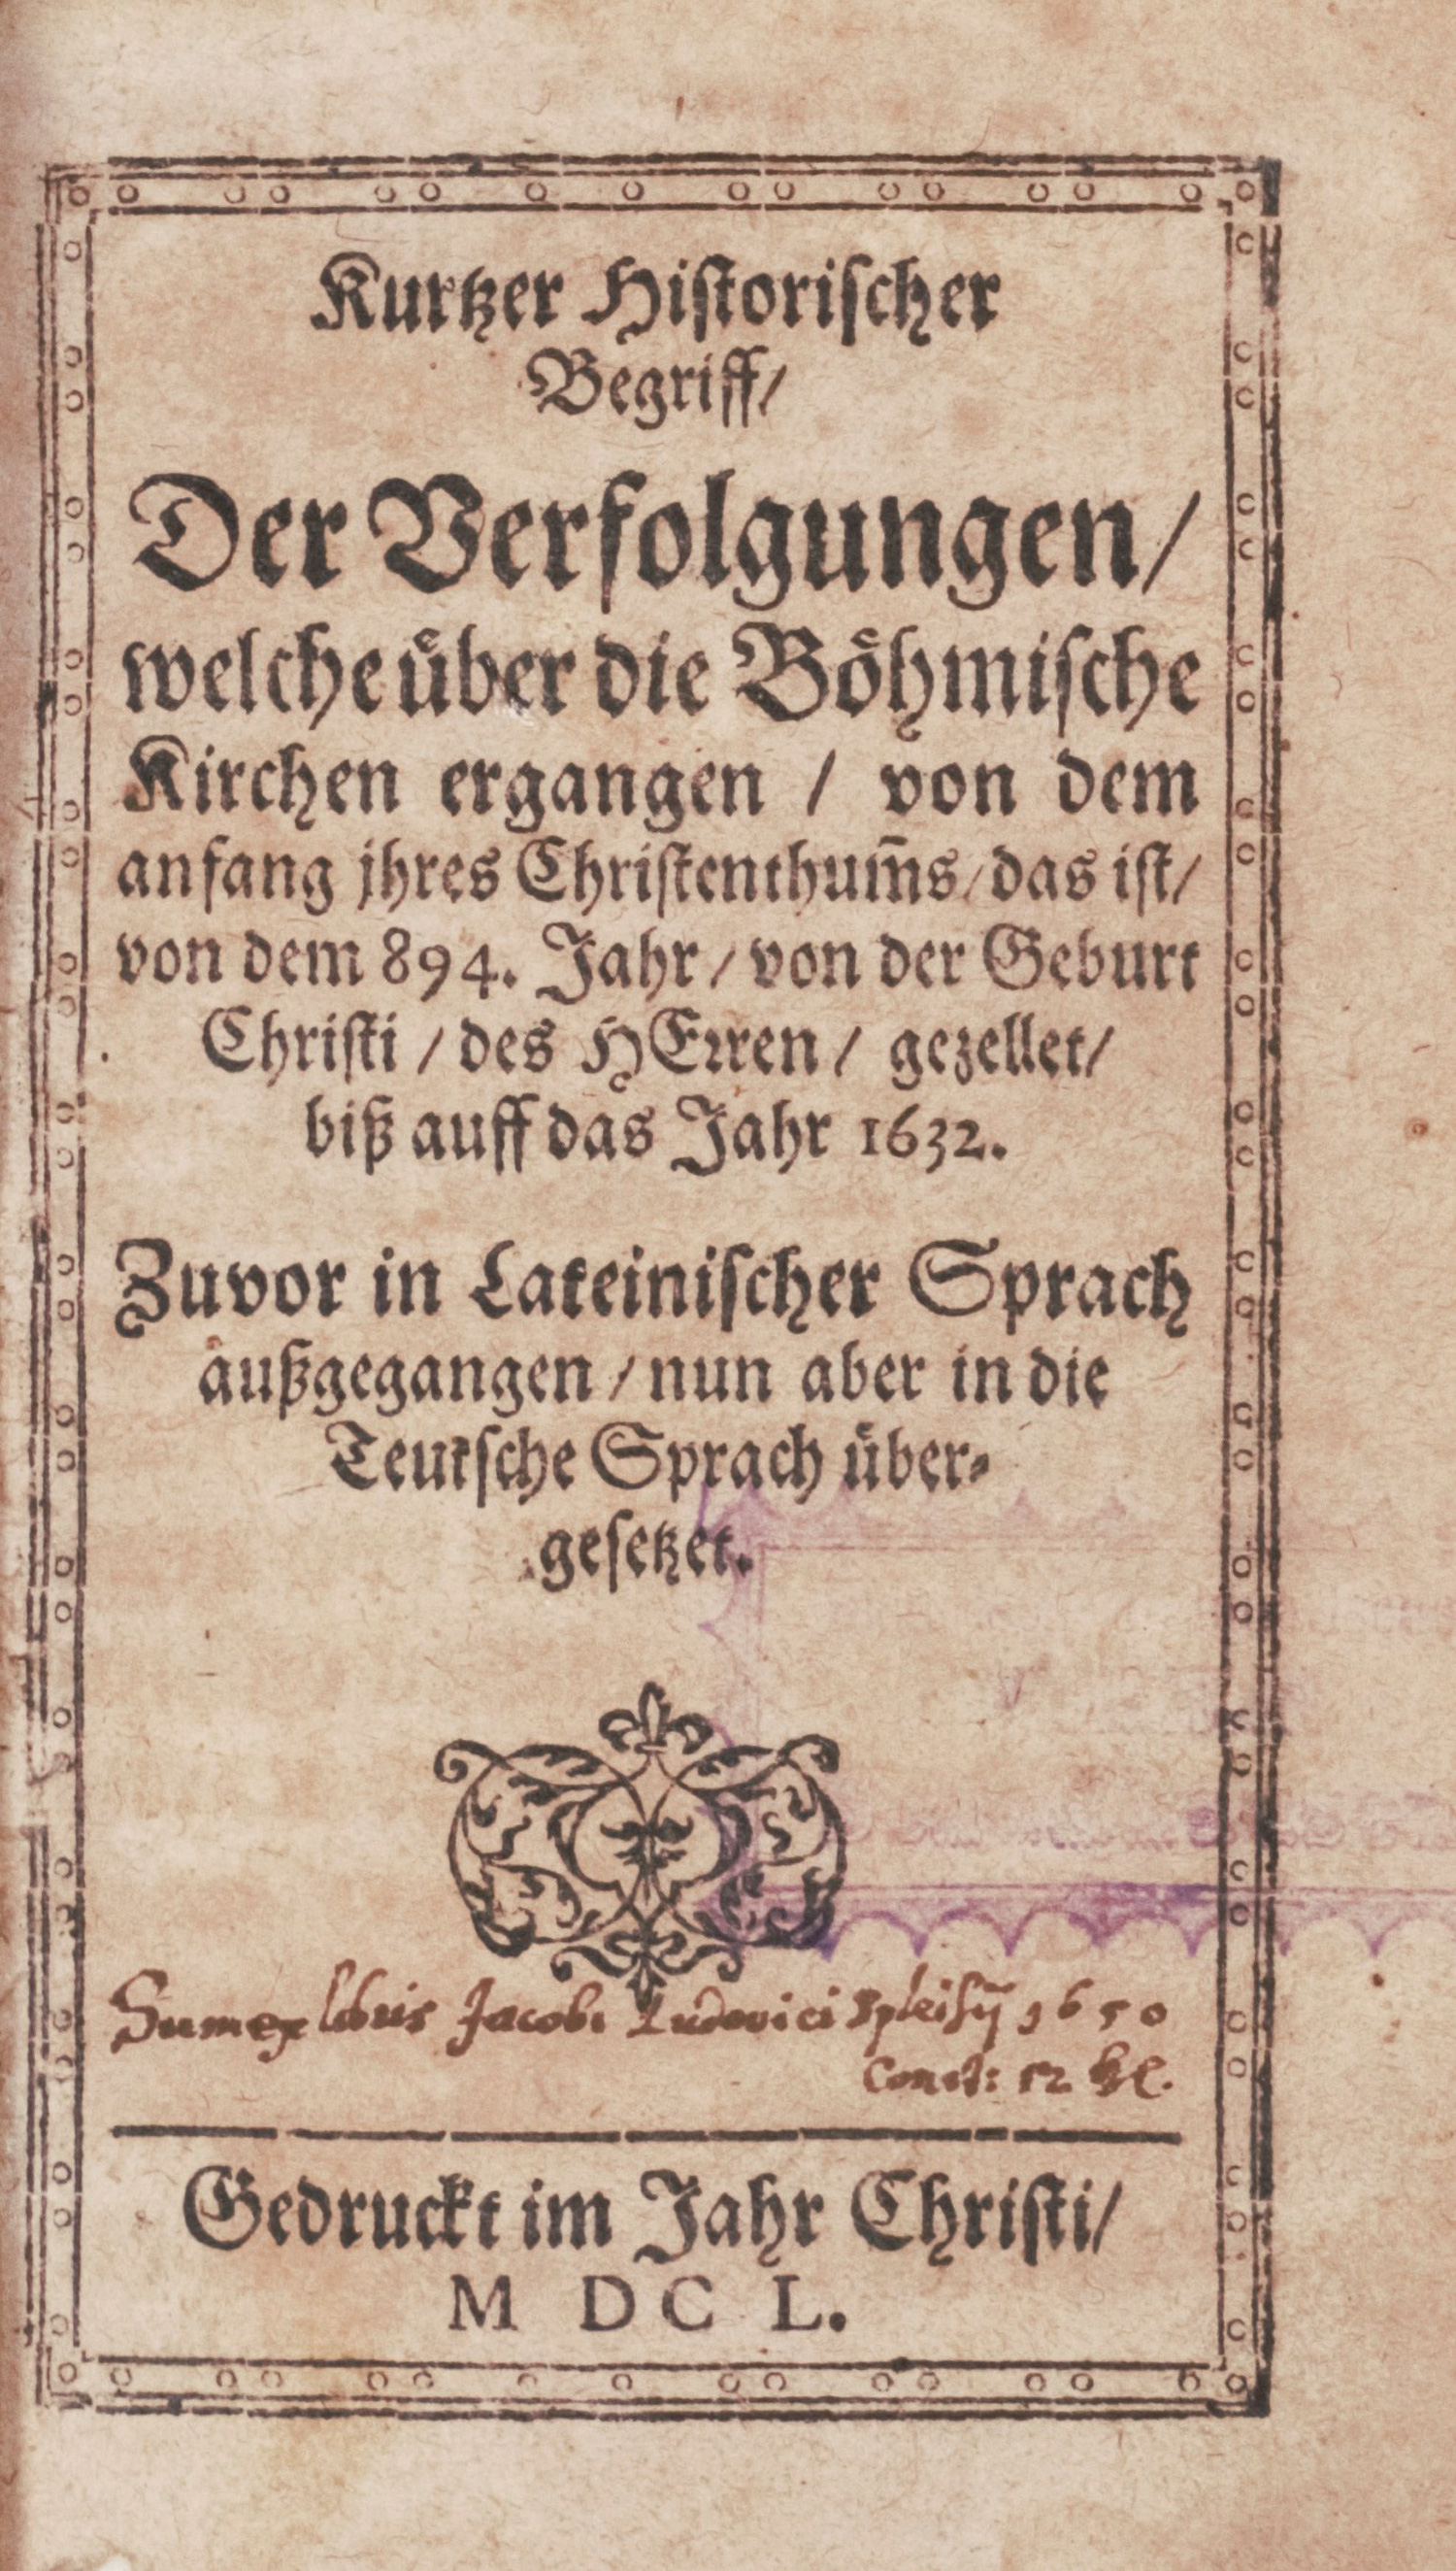 Kurtzer Historischer
Begriff/
Der Verfolgungen/
welche uͤber die Boͤhmische
Kirchen ergangen / von dem
anfang jhres Christenthum̃s/ das ist/
von dem 894. Jahr / von der Geburt
Christi / des HErren / gezellet/
biß auff das Jahr 1632.
Zuvor in Lateinischer Sprach
außgegangen / nun aber in die
Teutsche Sprach uͤber-
gesetzet.
Sum ex libris Jacobi Ludovici 1650
Const: 12
Gedruckt im Jahr Christi/
M DC L.